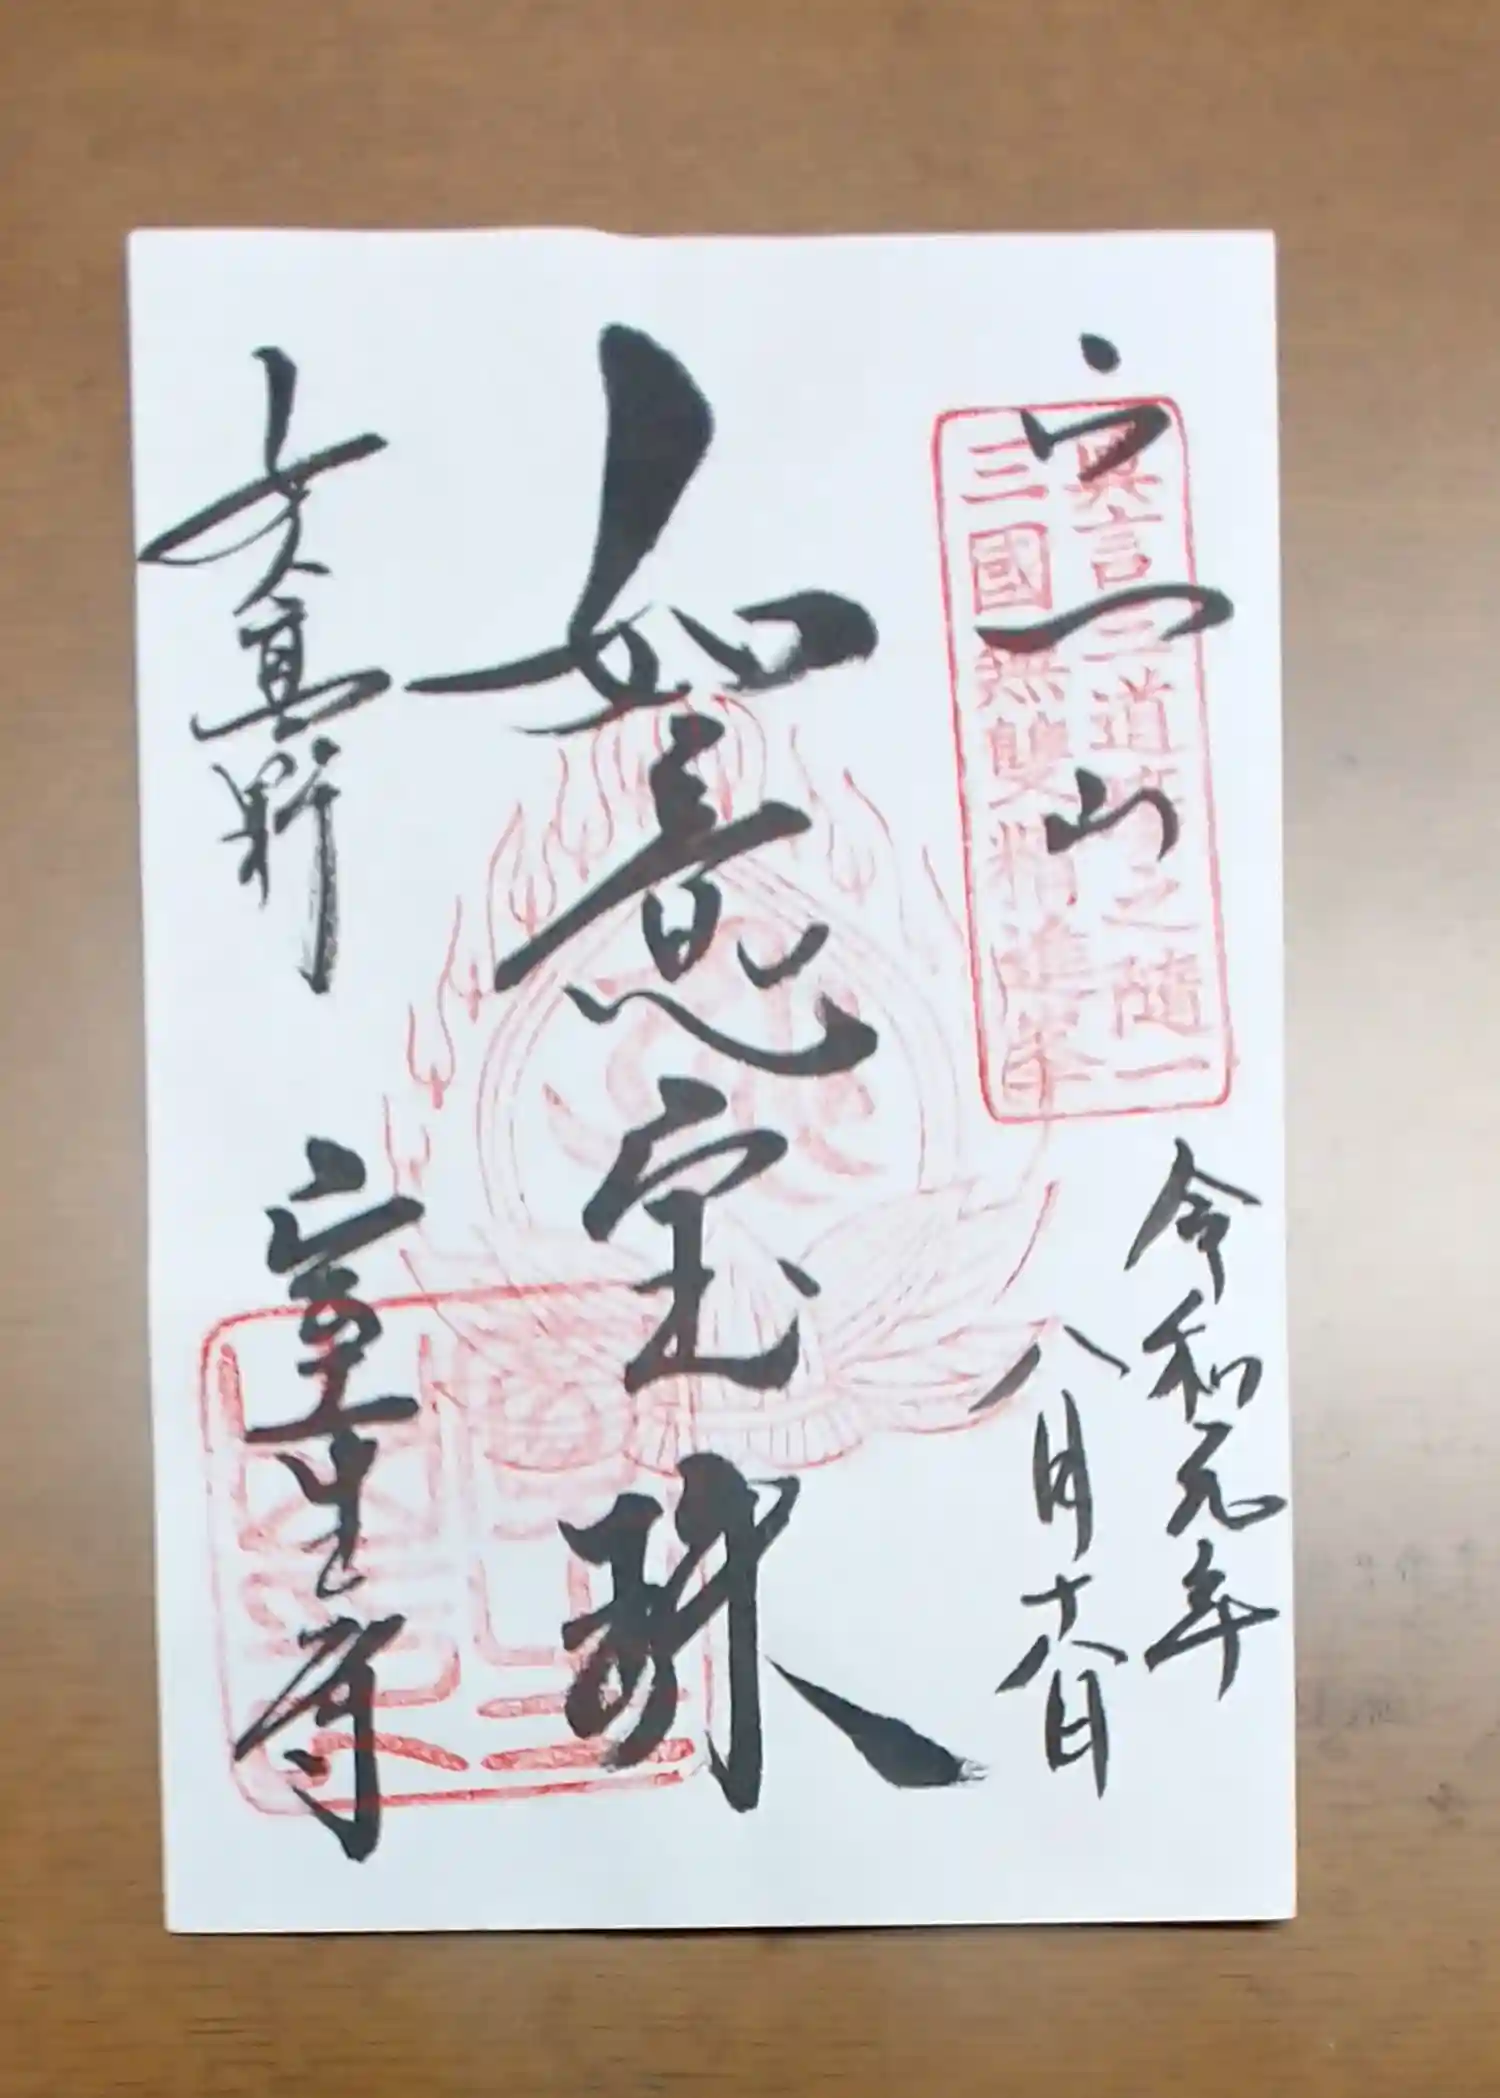 宀一山
真言三道場之隨一
三國無雙精進峯
令和元年
八月十八日
如意宝珠
女人高野
室生寺